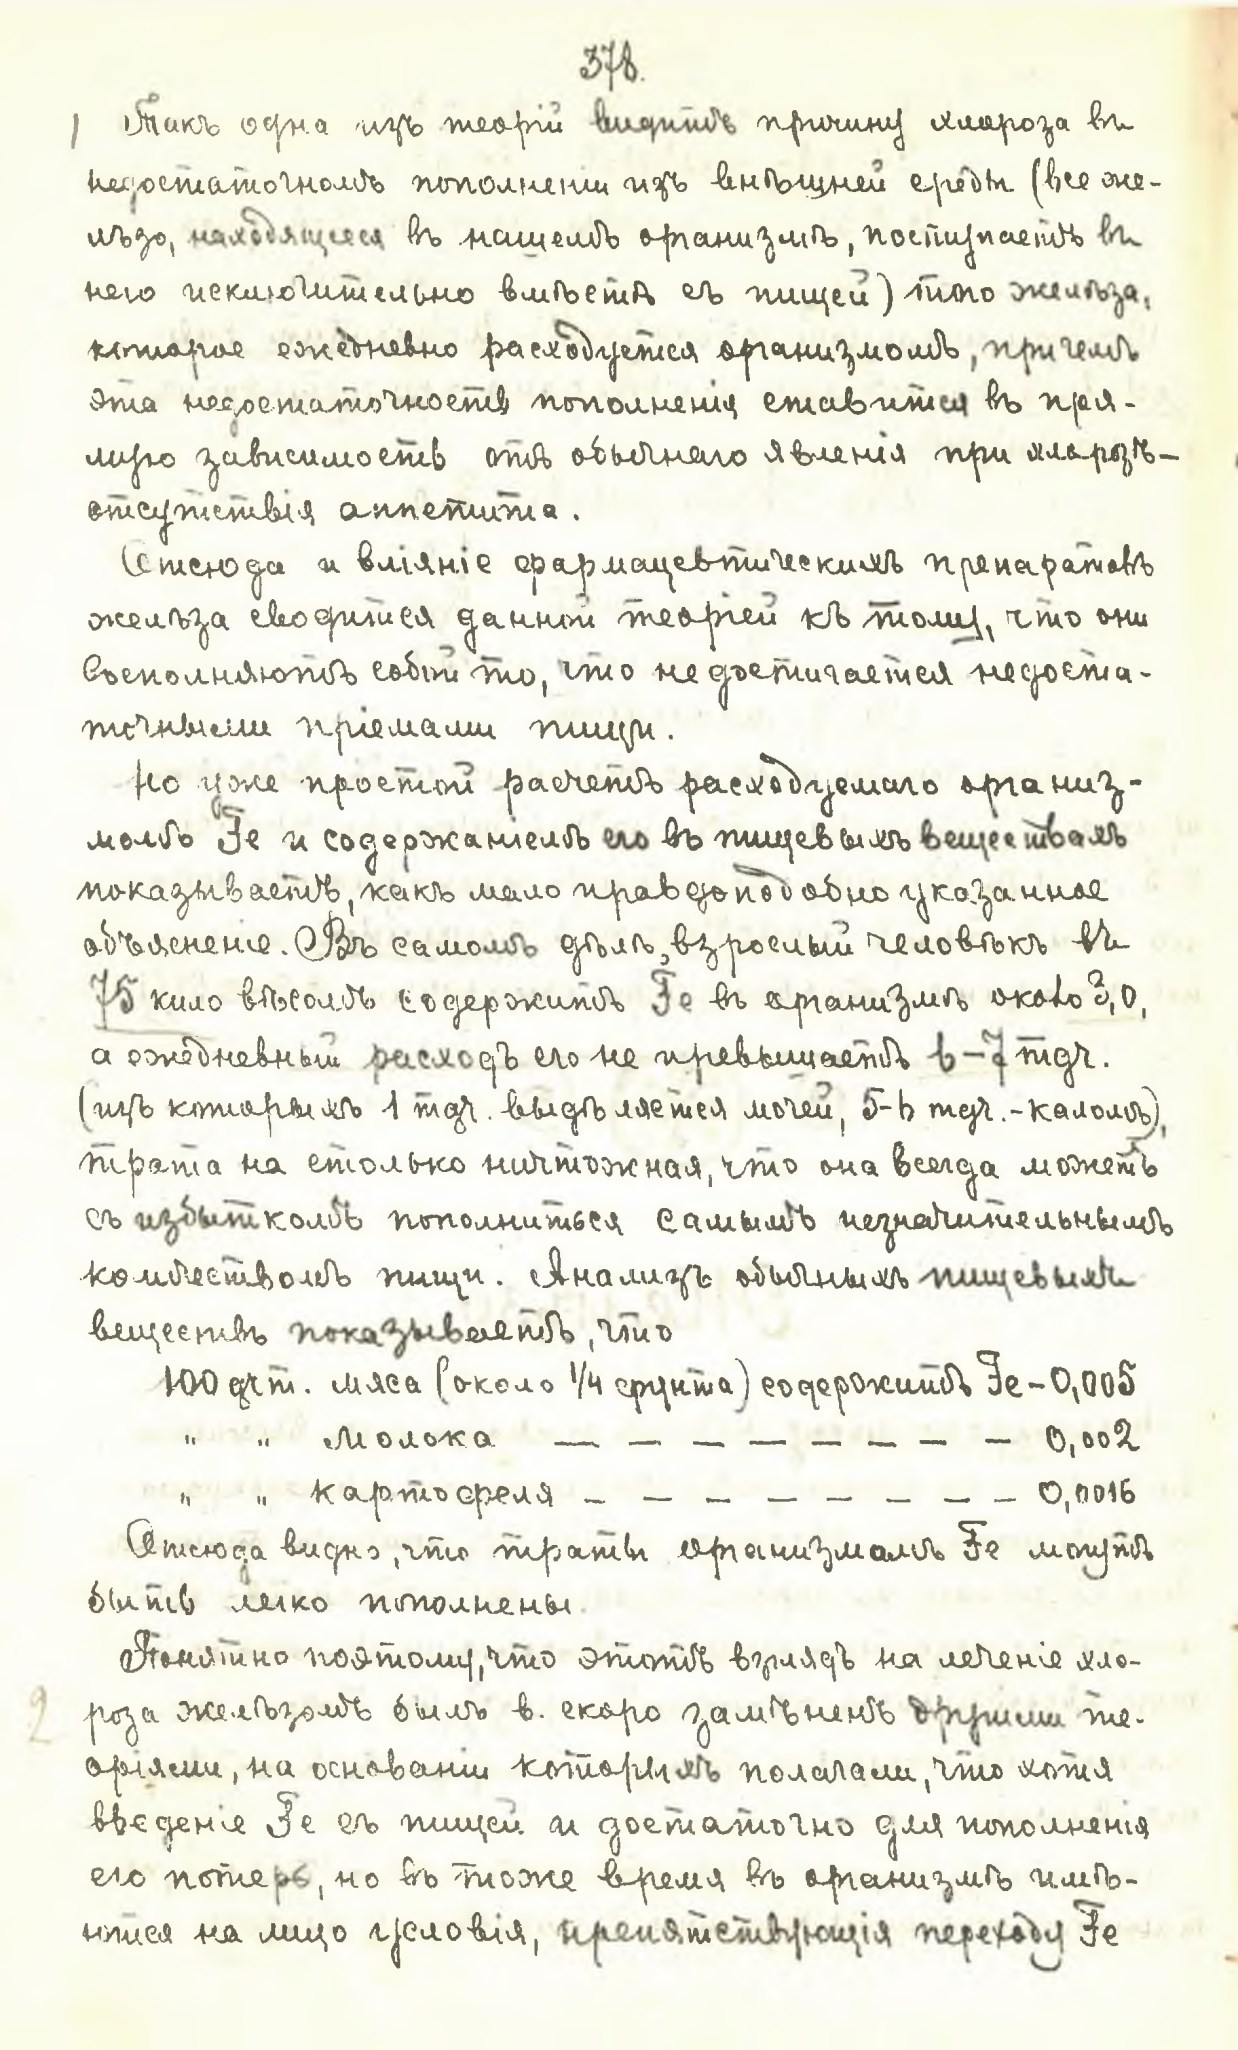 378.
1 Такъ одна изъ теорій видитъ причину хлороза въ
недостаточномъ пополненіи изъ внѣшней среды (все же-
лѣзо, находящееся въ нашемъ организмѣ, поступаетъ въ
него исключительно вмѣстѣ съ пищей) того желѣза,
которое ежедневно расходуется организмомъ, причемъ
эта недостаточность пополненія ставится въ пря-
мую зависимость отъ обычнаго явленія при хлорозѣ—
отсутствія аппетита.
Отсюда и вліяніе фармацевтическихъ препаратовъ
желѣза сводится данной теоріей къ тому, что они
восполняютъ собой то, что не достигается недоста-
точными пріемами пищи.
Но уже простой расчетъ расходуемаго организ-
момъ Fe и содержаніемъ его въ пищевыхъ веществахъ
показываетъ, какъ мало правдоподобно указанное
объясненіе. Въ самомъ дѣлѣ, взрослый человѣкъ въ
75 кило вѣсомъ содержитъ Fe въ организмѣ около 3,0,
а ежедневный расходъ его не превышаетъ 6–7 mgr.
(изъ которыхъ 1 mgr. выдѣляется мочей, 5-6 mgr. - каломъ),
трата на столько ничтожная, что она всегда можетъ
съ избыткомъ пополниться самымъ незначительнымъ
количествомъ пищи. Анализъ обычныхъ пищевыхъ
веществъ показываетъ, что
100 grm. мяса (около 1/4 фунта) содержитъ Fe – 0,005
" " молока — — — — — — — — — 0,002
" " картофеля — — — — — — — — 0,0016
Отсюда видно, что траты организмомъ Fe могутъ
быть легко пополнены.
2 Понятно поэтому, что этотъ взглядъ на леченіе хло-
роза желѣзомъ былъ в. скоро замѣненъ другими те-
оріями, на основаніи которыхъ полагали, что хотя
введеніе Fe съ пищей и достаточно для пополненія
его потерь, но въ тоже время въ организмѣ имѣ-
ются на лицо условія, препятствующія переходу Fe